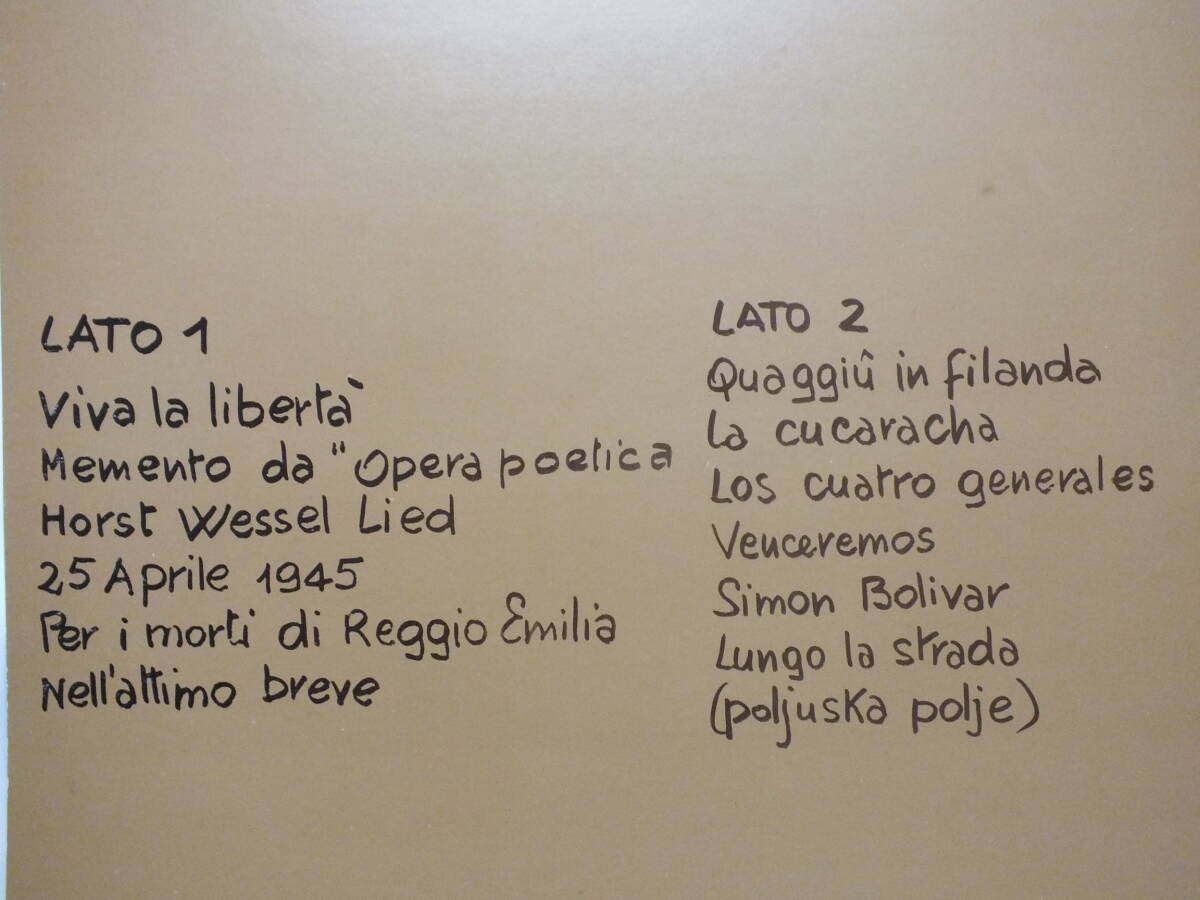 LATO 1
Viva la libertà
Memento da "Opera poetica
Horst Wessel Lied
25 Aprile 1945
Per i morti di Reggio Emilia
Nell'attimo breve
LATO 2
Quaggiû in filanda
La cucaracha
Los cuatro generales
Venceremos
Simon Bolivar
Lungo la strada
(poljuska polje)